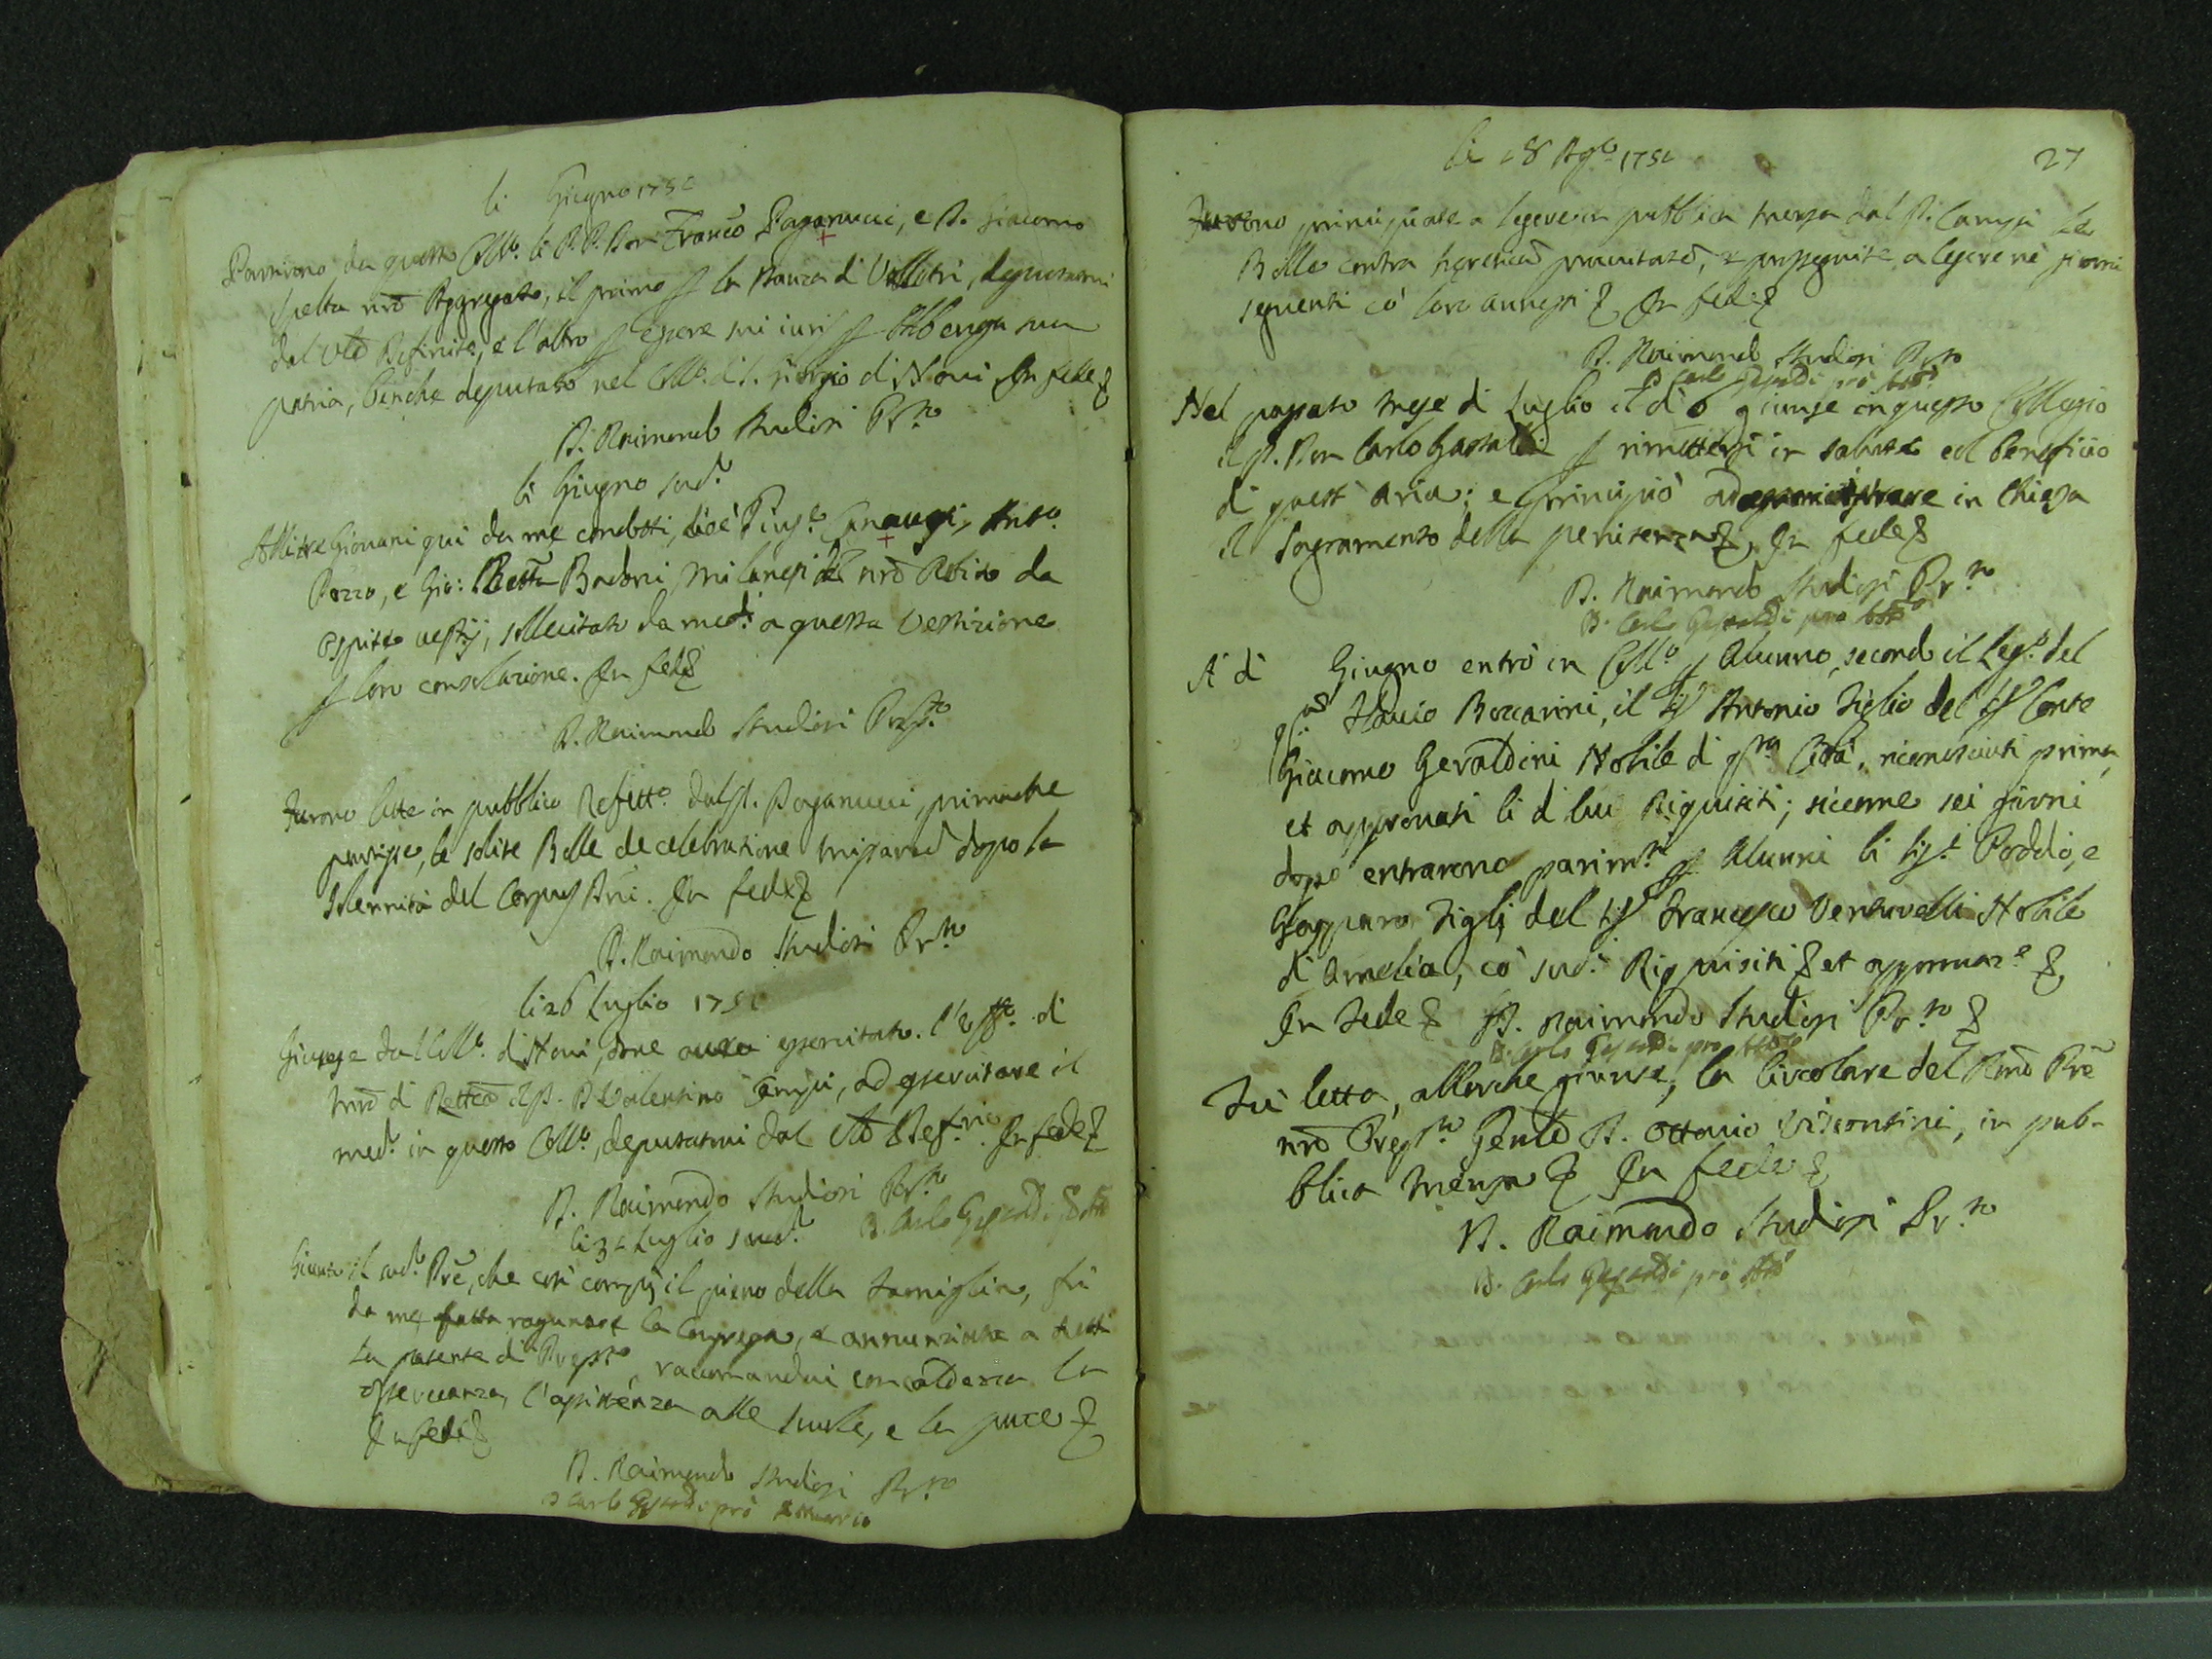 li Giugno 175
Partirono da questo Coll.º li P.P. Don Franco Paganucci, e D. Giacomo
Spelta nrō Aggregato, il primo p la stanza di Velletri, deputatovi
dal Vēo Definito, e l'altro p essere sui iuris p Albenga sua
patria, benche deputato nel Coll.º di S. Giorgio di Novi. In fede &
D. Raimondo Studiosi Prto
li Giugno sud.º
Alli tre Giovani qui da me condotti, cioè Anto.º
Pozzo, e Gio: Batta Badoni Milanesi nrō Abito da
Ospite vestij, sollecitato da med.i a questa Vestizione
p loro consolazione. In fede &
D. Raimondo Studiosi Prpto
Furono lette in pubblico Refett.º dal P. Paganucci, prima che
partisse, le solite Bolle de celebratione missarū dopo la
solennità del Corpus Dni. In fede &
D. Raimondo Studiosi Prto
li 26 Luglio 175
Giunse dal Coll.º di Novi, dove avea esercitato l'Uff.º di
Mrō di Rettcā il P. D. Valentino Campi, ad esercitare il
med.º in questo Coll.º, deputatovi dal Vēo Def.rio. In fede &
D. Raimondo Studiosi Prto
li 31 Luglio sud.º D. Carlo Gesualdi
Giunto il sud.º Prē, che così compij il pieno della Famiglia, fù
da me fatta ragunare la Congrega, e annunziata a tutti
la patente di Prepto raccomandai con caldezza la
osservanza, l'assistenza alle scuole, e la pace &
In fede &
D. Raimondo Studiosi Prto
D Carlo Gesualdi prò Attuario
li 18 Ag.to 175
27
Furono principiate a legere in pubblica mensa dal P. Campi le
Bolle contra hereticā pravitatē, e prosseguite a legere nè giorni
seguenti cò loro annessi & In fede &
D. Raimondo Studiosi Prto
D Carlo Gesualdi prò Att
Nel passato mese di Luglio il dì 6 giunse in questo Collegio
il P. Don Carlo p rimettersi in salute col beneficio
di quest'aria; e principiò ad in Chiesa
il Sagramento della penitenza &, In fede &
D. Raimondo Studiosi Pr.to
D. Carlo Gesualdi prò Att
A dì Giugno entrò in Coll.º p Alunno, secondo il Leg.º del
Flavio Boccarini, il Sig Antonio Figlio del Sig Conte
Giacomo Geraldini Nobile di qta Città, riconosciuti prima,
et approvati li di lui Riquisiti; siccome sei giorni
dopo entrarono parim.ti p Alunni li Sig.i Poddo, e
Gasparo Figlj del Sig Francesco Venturelli Nobile
di Amelia, cò sud.i Riquisiti & et approvaz.e &
In Fede & D. Raimondo Studiosi Pr.to &
D. Carlo Gesualdi pro Att
Fù letta, allorche giunse, la Circolare del Rmō Prē
nrō Prepto Genlē D. Ottavio Visconti, in pub-
blica Mensa & In fede &
D. Raimondo Studiosi Pr.to
D. Carlo Gesualdi prò Att